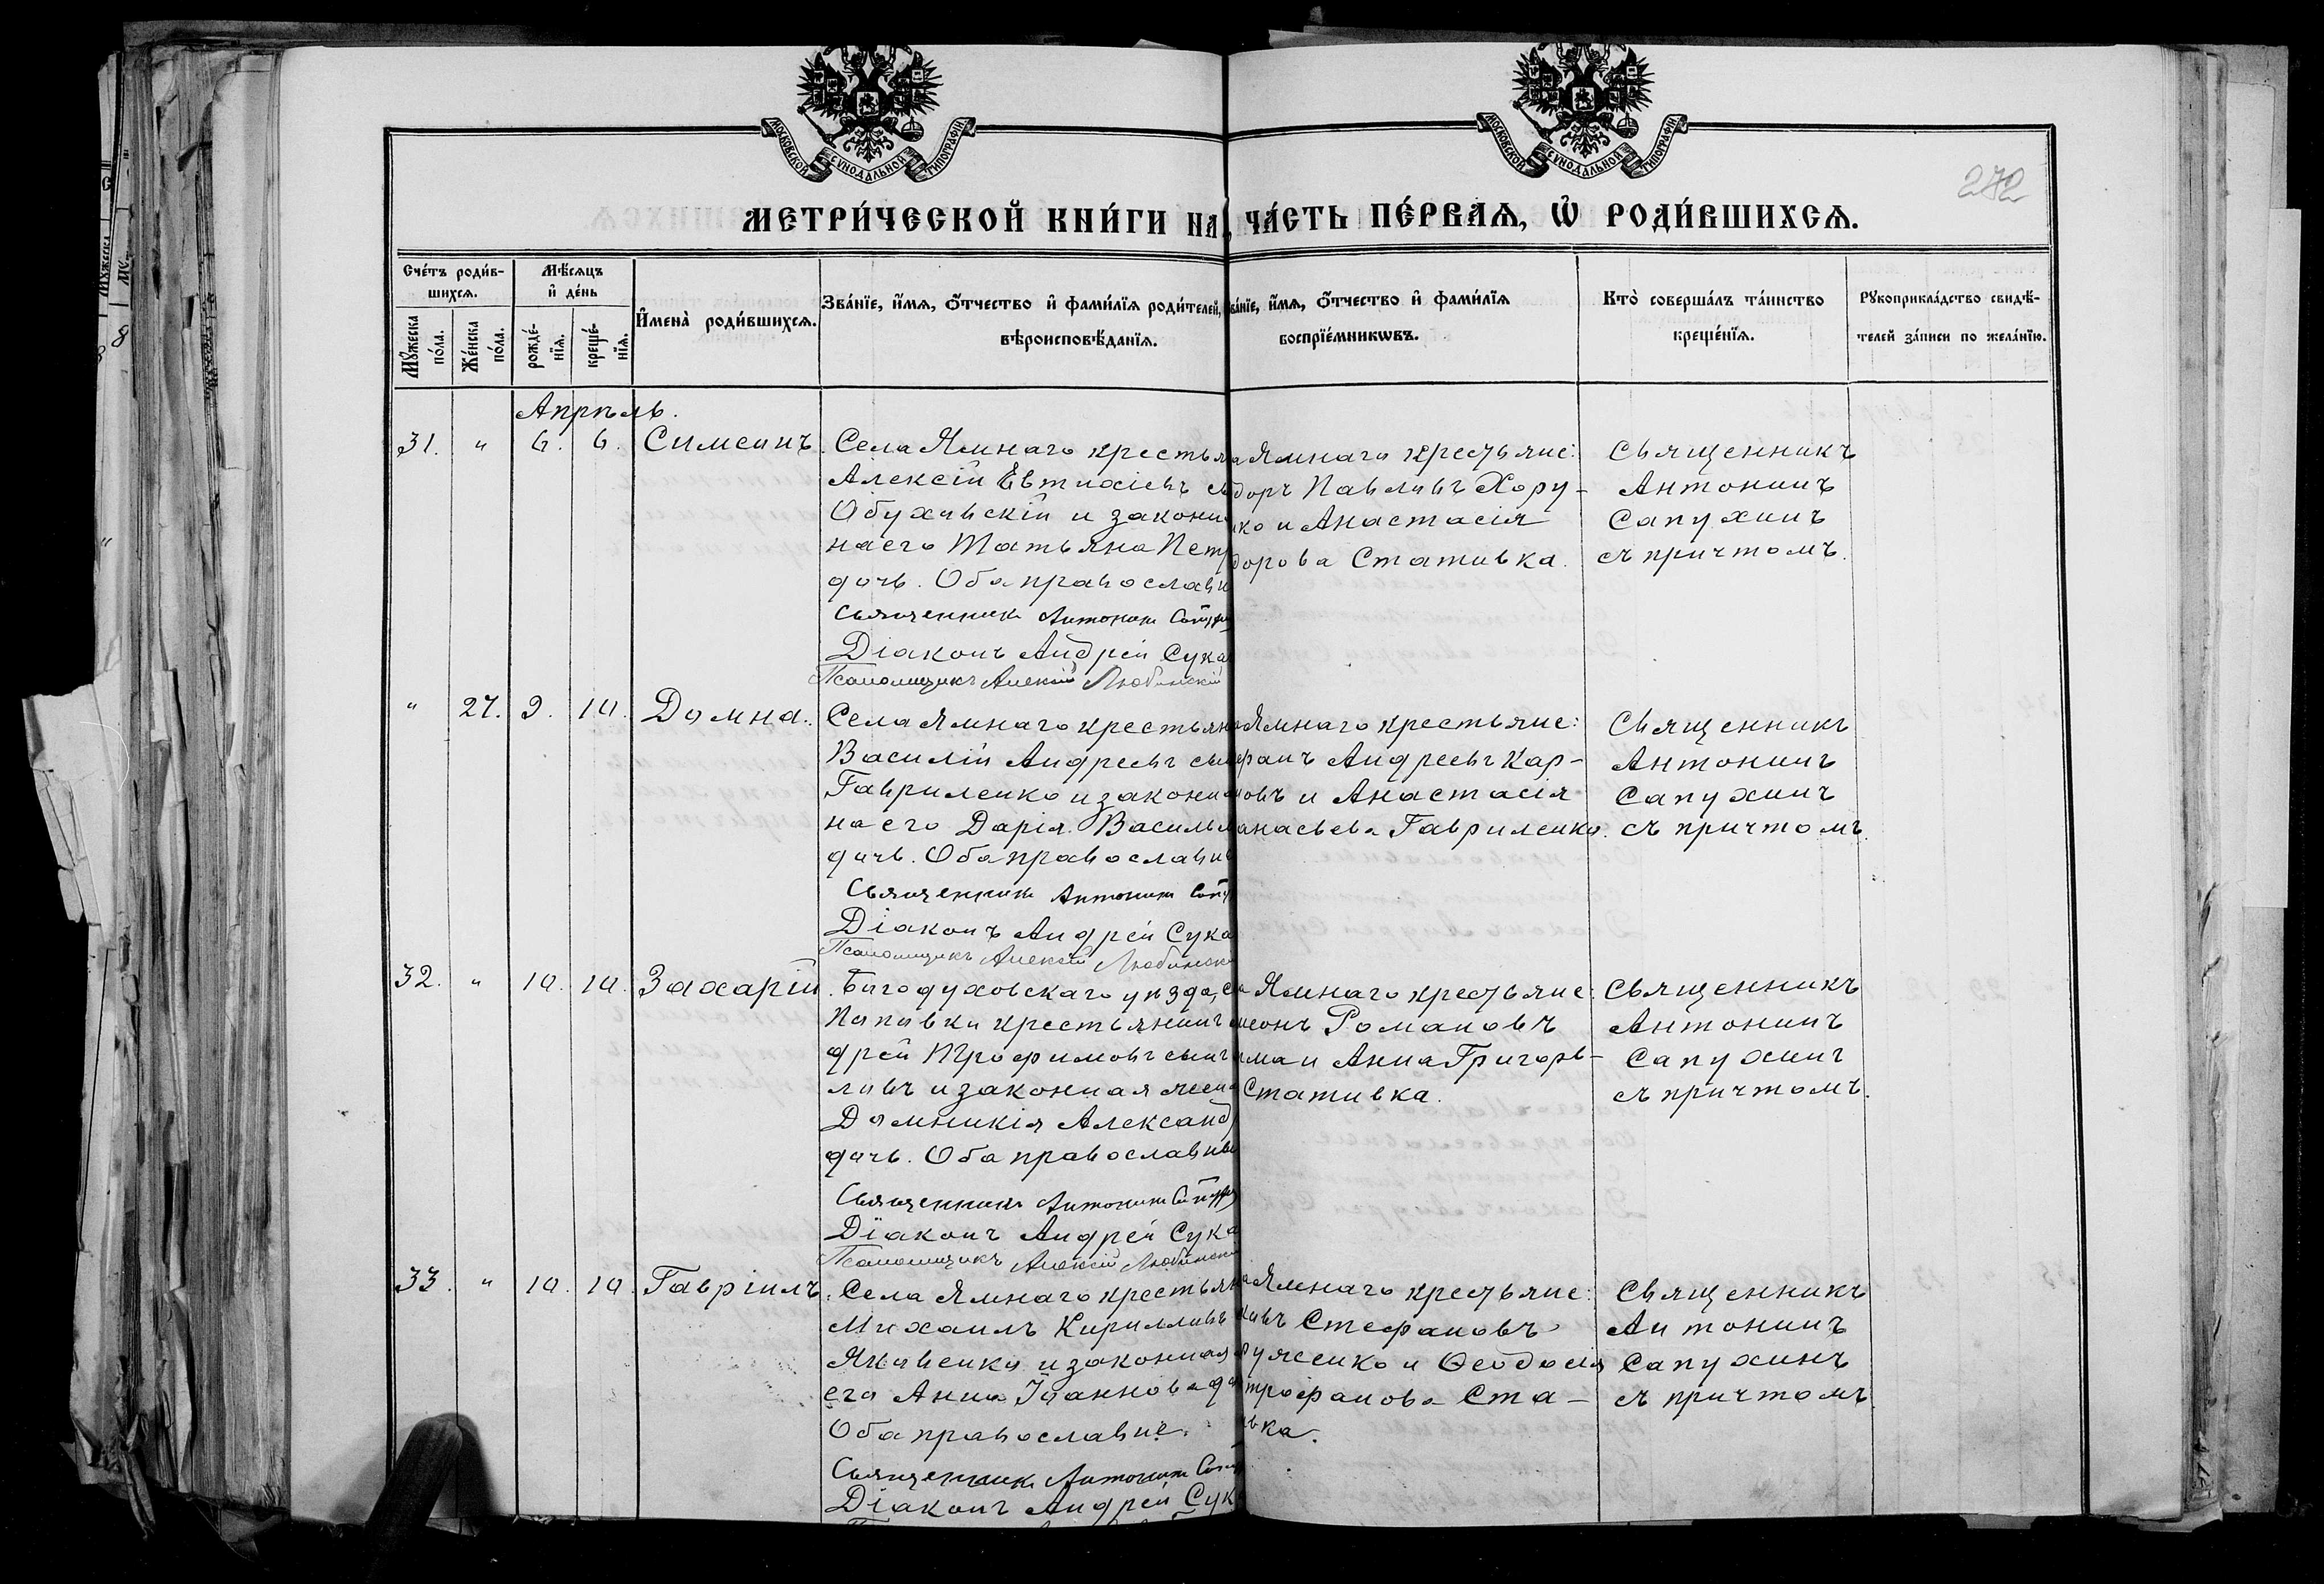 МОСКОВСКОЙ СУНОДАЛЬНОЙ ТИПОГРАФІИ
МОСКОВСКОЙ СУНОДАЛЬНОЙ ТИПОГРАФІИ
272
МЕТРИ́ЧЕСКОЙ КНИ́ГИ НА, ЧА́СТЬ ПЕ́РВАЯ, Ѽ РОДИ́ВШИХСѦ.
Сче́тъ роди́в-
шихсѧ.
Мꙋ́жеска по́ла.
Же́нска по́ла.
Мѣ́сѧцъ
и҆ де́нь
рожде́-
нїѧ.
креще́-
нїѧ.
И҆мена̀ роди́вшихсѧ.
Зва́нїе, и҆́мѧ, ѻ҆́тчество и҆ фами́лїѧ роди́телей,
вѣроисповѣ́данїѧ.
ва́нїе, и҆́мѧ, ѻ҆́тчество и҆ фами́лїѧ
воспрїе́мникѡвъ.
Кто̀ соверша́лъ та́инство
креще́нїѧ.
Рꙋкоприкла́дство свидѣ́-
телей за́писи по жела́нїю.
Апрѣль.
31. " 6. 6. Симеонъ.
Села Ямнаго крестья
Алексій Евтихіевъ
Обуховскій и законн
на его Татьяна Пет
дочь. Оба православн
Священникъ Антонинъ Сапух
Діаконъ Андрей Сука
Псаломщикъ Алексій Любинскій
Ямнаго крестьяне:
доръ Павловъ Хору-
ко и Анастасія
дорова Стативка.
Священникъ
Антонинъ
Сапухинъ
съ причтомъ.
" 27. 9. 10. Домна.
Села Ямнаго крестьян
Василій Андреевъ сы
Гавриленко и законн
на его Дарія Василь
дочь. Оба православн
Священникъ Антонинъ Сап
Діаконъ Андрей Сука
Псаломщикъ Алексій Любинск
Ямнаго крестьяне:
фанъ Андреевъ Кар-
овъ и Анастасія
анасьева Гавриленко.
Священникъ
Антонинъ
Сапухинъ
съ причтомъ.
32. " 10. 10. Захарій.
Богодуховскаго уѣзда, с
Поповки крестьянинъ
дрей Трофимовъ сынъ
ловъ и законная жена
Домникія Александ
дочь. Оба православны
Священникъ Антонинъ Сапух
Діаконъ Андрей Сука
Псаломщикъ Алексій Любинскі
Ямнаго крестьяне:
меонъ Романовъ
ма и Анна Григорь-
Стативка.
Священникъ
Антонинъ
Сапухинъ
съ причтомъ.
33. " 10. 10. Гавріилъ.
Села Ямнаго крестьян
Михаилъ Кирилловъ
Яковенко и законная
его Анна Іоаннова до
Оба православные.
Священникъ Антонинъ Сап
Діаконъ Андрей Сук
Ямнаго крестьяне:
ковъ Стефановъ
уженко и Ѳеодосія
трофанова Ста-
вка.
Священникъ
Антонинъ
Сапухинъ
съ причтомъ